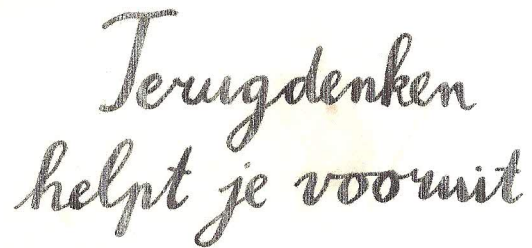 Terugdenken
helpt je vooruit